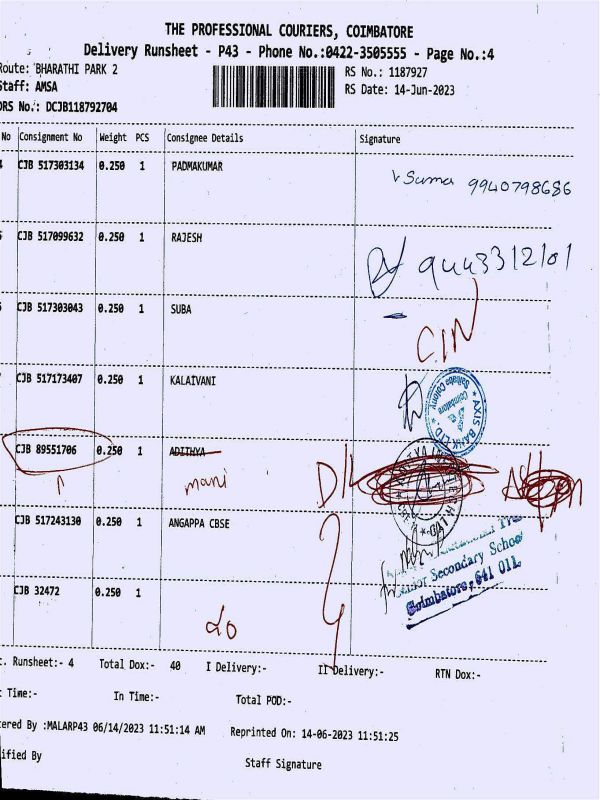 THE PROFESSIONAL COURIERS, COIMBATORE
Delivery Runsheet - P43 - Phone No.:0422-3505555 - Page No.:4
Route: BHARATHI PARK 2
RS No.: 1187927
Staff: AMSA
RS Date: 14-Jun-2023
DRS No.: DCJB118792704
No Consignment No Weight PCS Consignee Details Signature
4 CJB 517303134 0.250 1 PADMAKUMAR
Suma 9940798686
CJB 517099632 0.250 1 RAJESH
CJB 517303043 0.250 1 SUBA
CJB 517173407 0.250 1 KALAIVANI
AXIS BANK LTD
Saibaba Colony
Coimbatore
CJB 89551706 0.250 1 ADITHYA
mani
D/L
CJB 517243130 0.250 1 ANGAPPA CBSE
Senior Secondary School
Coimbatore, 641 011.
CJB 32472 0.250 1
. Runsheet:- 4 Total Dox:- 40 I Delivery:- II Delivery:- RTN Dox:-
Time:- In Time:- Total POD:-
ered By :MALARP43 06/14/2023 11:51:14 AM Reprinted On: 14-06-2023 11:51:25
ified By Staff Signature